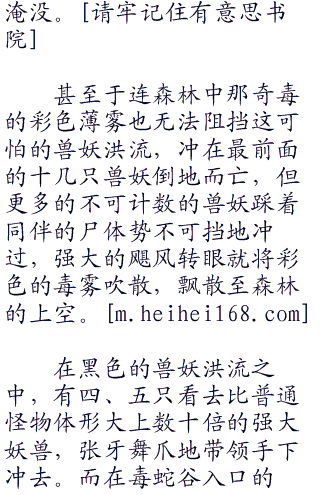 淹没。[请牢记住有意思书
院]
甚至于连森林中那奇毒
的彩色薄雾也无法阻挡这可
怕的兽妖洪流，冲在最前面
的十几只兽妖倒地而亡，但
更多的不可计数的兽妖踩着
同伴的尸体势不可挡地冲
过，强大的飓风转眼就将彩
色的毒雾吹散，飘散至森林
的上空。[m.heihei168.com]
在黑色的兽妖洪流之
中，有四、五只看去比普通
怪物体形大上数十倍的强大
妖兽，张牙舞爪地带领手下
冲去。而在毒蛇谷入口的